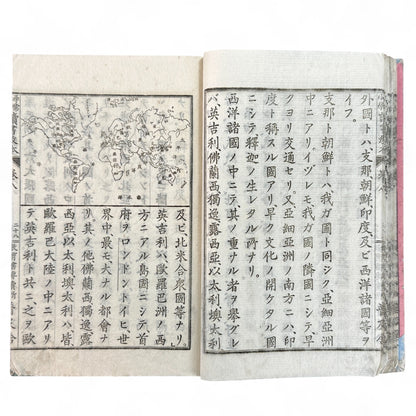 外國トハ、支那、朝鮮、印度及ビ西洋諸國等ヲ
イフ。
支那ト朝鮮トハ、我ガ國ト同ジク、亞細亞洲
中ニアリ。イヅレモ、我ガ國ノ隣國ニシテ、早
クヨリ交通セリ。又亞細亞洲ノ南方ニハ、印
度ト稱スル國アリ。早ク文化ノ開ケタル國
ニシテ、釋迦ノ生レタル所ナリ。
西洋諸國ノ中ニテ、其ノ重ナル者ヲ擧グレ
バ、英吉利、佛蘭西、獨逸、露西亞、以太利、墺太利
及ビ北米合衆國等ナリ。
英吉利ハ、歐羅巴洲ノ西
方ニアル島國ニシテ、首
府ヲロンドントイヒ、世
界中最モ大ナル都會ナ
リ。其ノ他、佛蘭西、獨逸、露
西亞、以太利、墺太利ハ、皆
歐羅巴大陸ノ中ニアリ
テ、英吉利ト共ニ、之ヲ歐